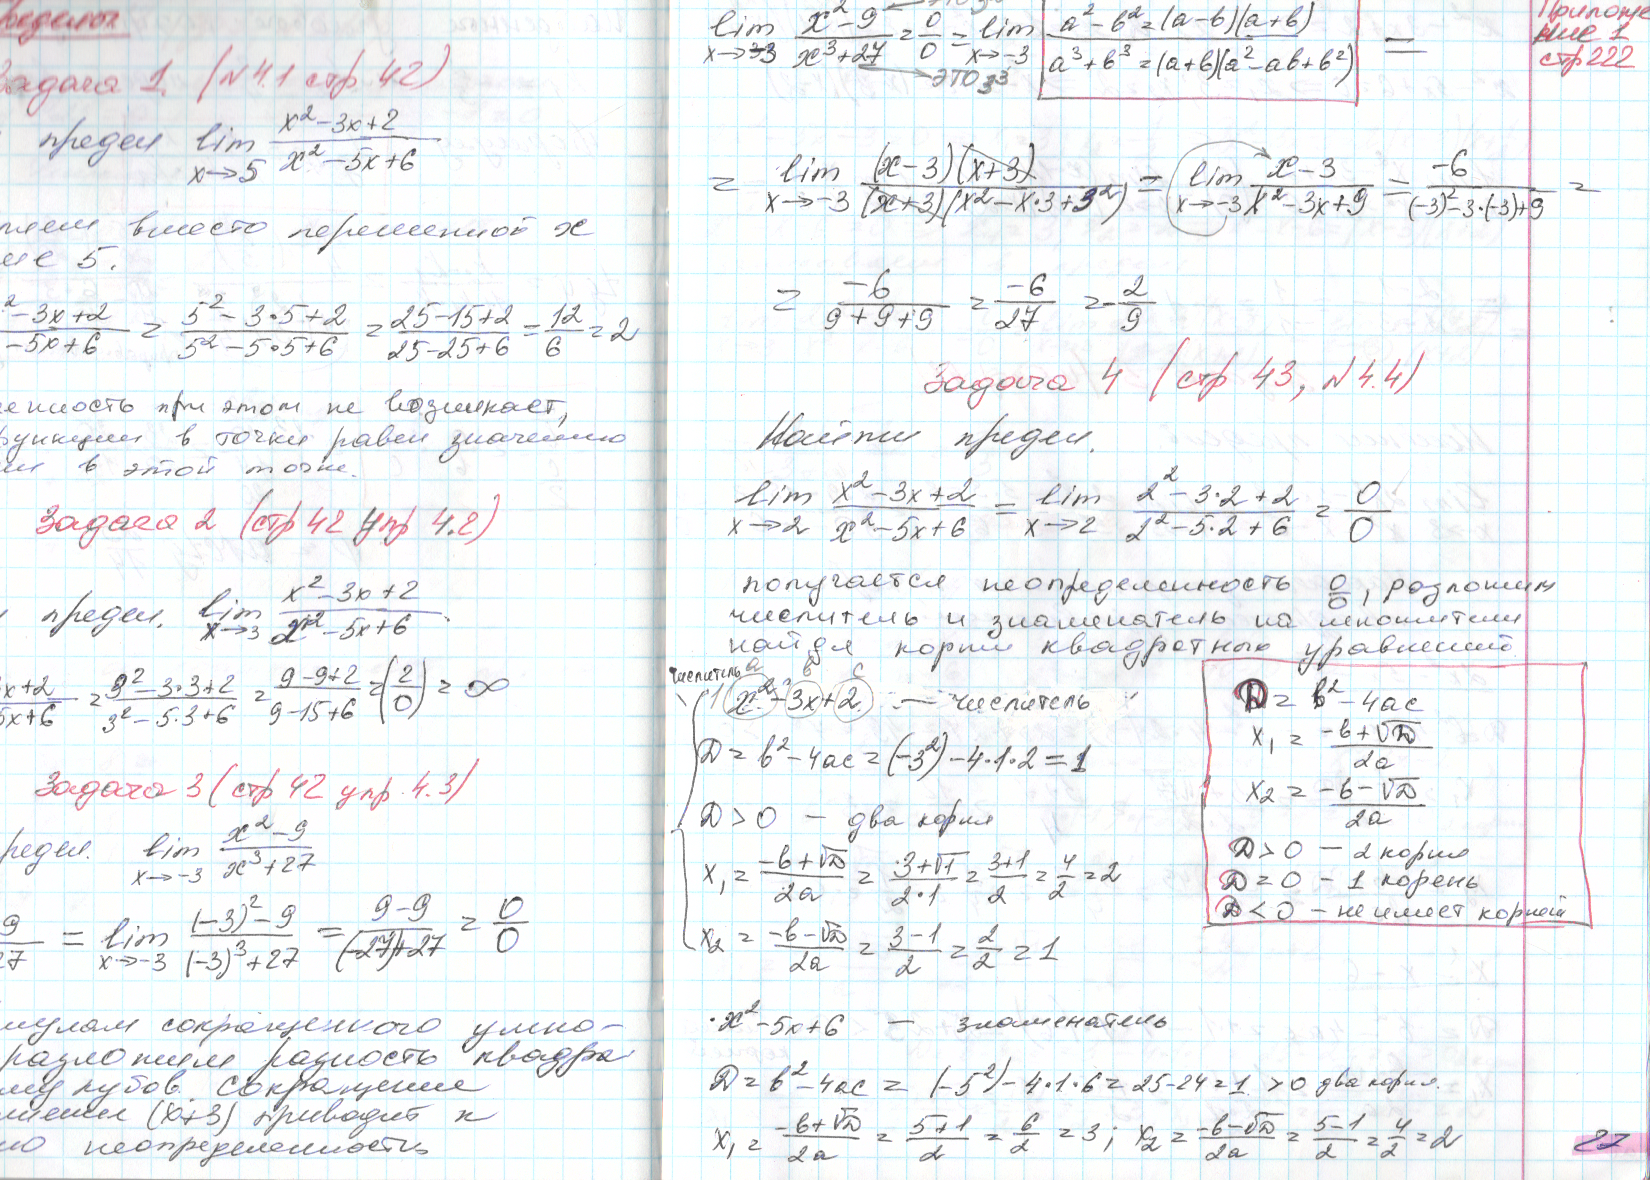 Задача 1. (№4.1 стр 42)
предел lim x→5 (x²-3x+2)/(x²-5x+6)
вместо переменной x
5.
(²-3x+2)/(-5x+6) = (5²-3·5+2)/(5²-5·5+6) = (25-15+2)/(25-25+6) = 12/6 = 2
при этом не возникает,
функции в точке равен значению
в этой точке.
Задача 2 (стр 42 упр 4.2)
предел. lim x→3 (x²-3x+2)/(x²-5x+6)
(x+2)/(5x+6) = (3²-3·3+2)/(3²-5·3+6) = (9-9+2)/(9-15+6) = (2/0) = ∞
Задача 3 (стр 42 упр. 4.3)
lim x→-3 (x²-9)/(x³+27)
9/27 = lim x→-3 ((-3)²-9)/((-3)³+27) = (9-9)/((-27)+27) = 0/0
сокращенного умно-
разложим разность квадра
кубов. сокращение
(x+3) приводит к
неопределенность
lim x→-3 (x²-9)/(x³+27) = 0/0 = lim x→-3
это 3³
a²-b²=(a-b)(a+b)
a³+b³=(a+b)(a²-ab+b²)
=
Приложе
ние 1
стр 222
= lim x→-3 ((x-3)(x+3))/((x+3)(x²-x·3+3²)) = lim x→-3 (x-3)/(x²-3x+9) = -6/((-3)²-3·(-3)+9) =
= -6/(9+9+9) = -6/27 = -2/9
Задача 4 (стр 43, №4.4)
Найти предел.
lim x→2 (x²-3x+2)/(x²-5x+6) = lim x→2 (2²-3·2+2)/(2²-5·2+6) = 0/0
получается неопределенность 0/0, разложим
числитель и знаменатель на множители
найдя корни квадратных уравнений.
числитель a b c
1 x²-3x+2 — числитель
D = b²-4ac = (-3²)-4·1·2 = 1
D > 0 — два корня
x₁ = (-b+√D)/2a = (3+√1)/(2·1) = (3+1)/2 = 4/2 = 2
x₂ = (-b-√D)/2a = (3-1)/2 = 2/2 = 1
D = b²-4ac
x₁ = (-b+√D)/2a
x₂ = (-b-√D)/2a
D > 0 - 2 корня
D = 0 - 1 корень
D < 0 - не имеет корней
·x²-5x+6 — знаменатель
D = b²-4ac = (-5²)-4·1·6 = 25-24 = 1 > 0 два корня.
x₁ = (-b+√D)/2a = (5+1)/2 = 6/2 = 3; x₂ = (-b-√D)/2a = (5-1)/2 = 4/2 = 2
27